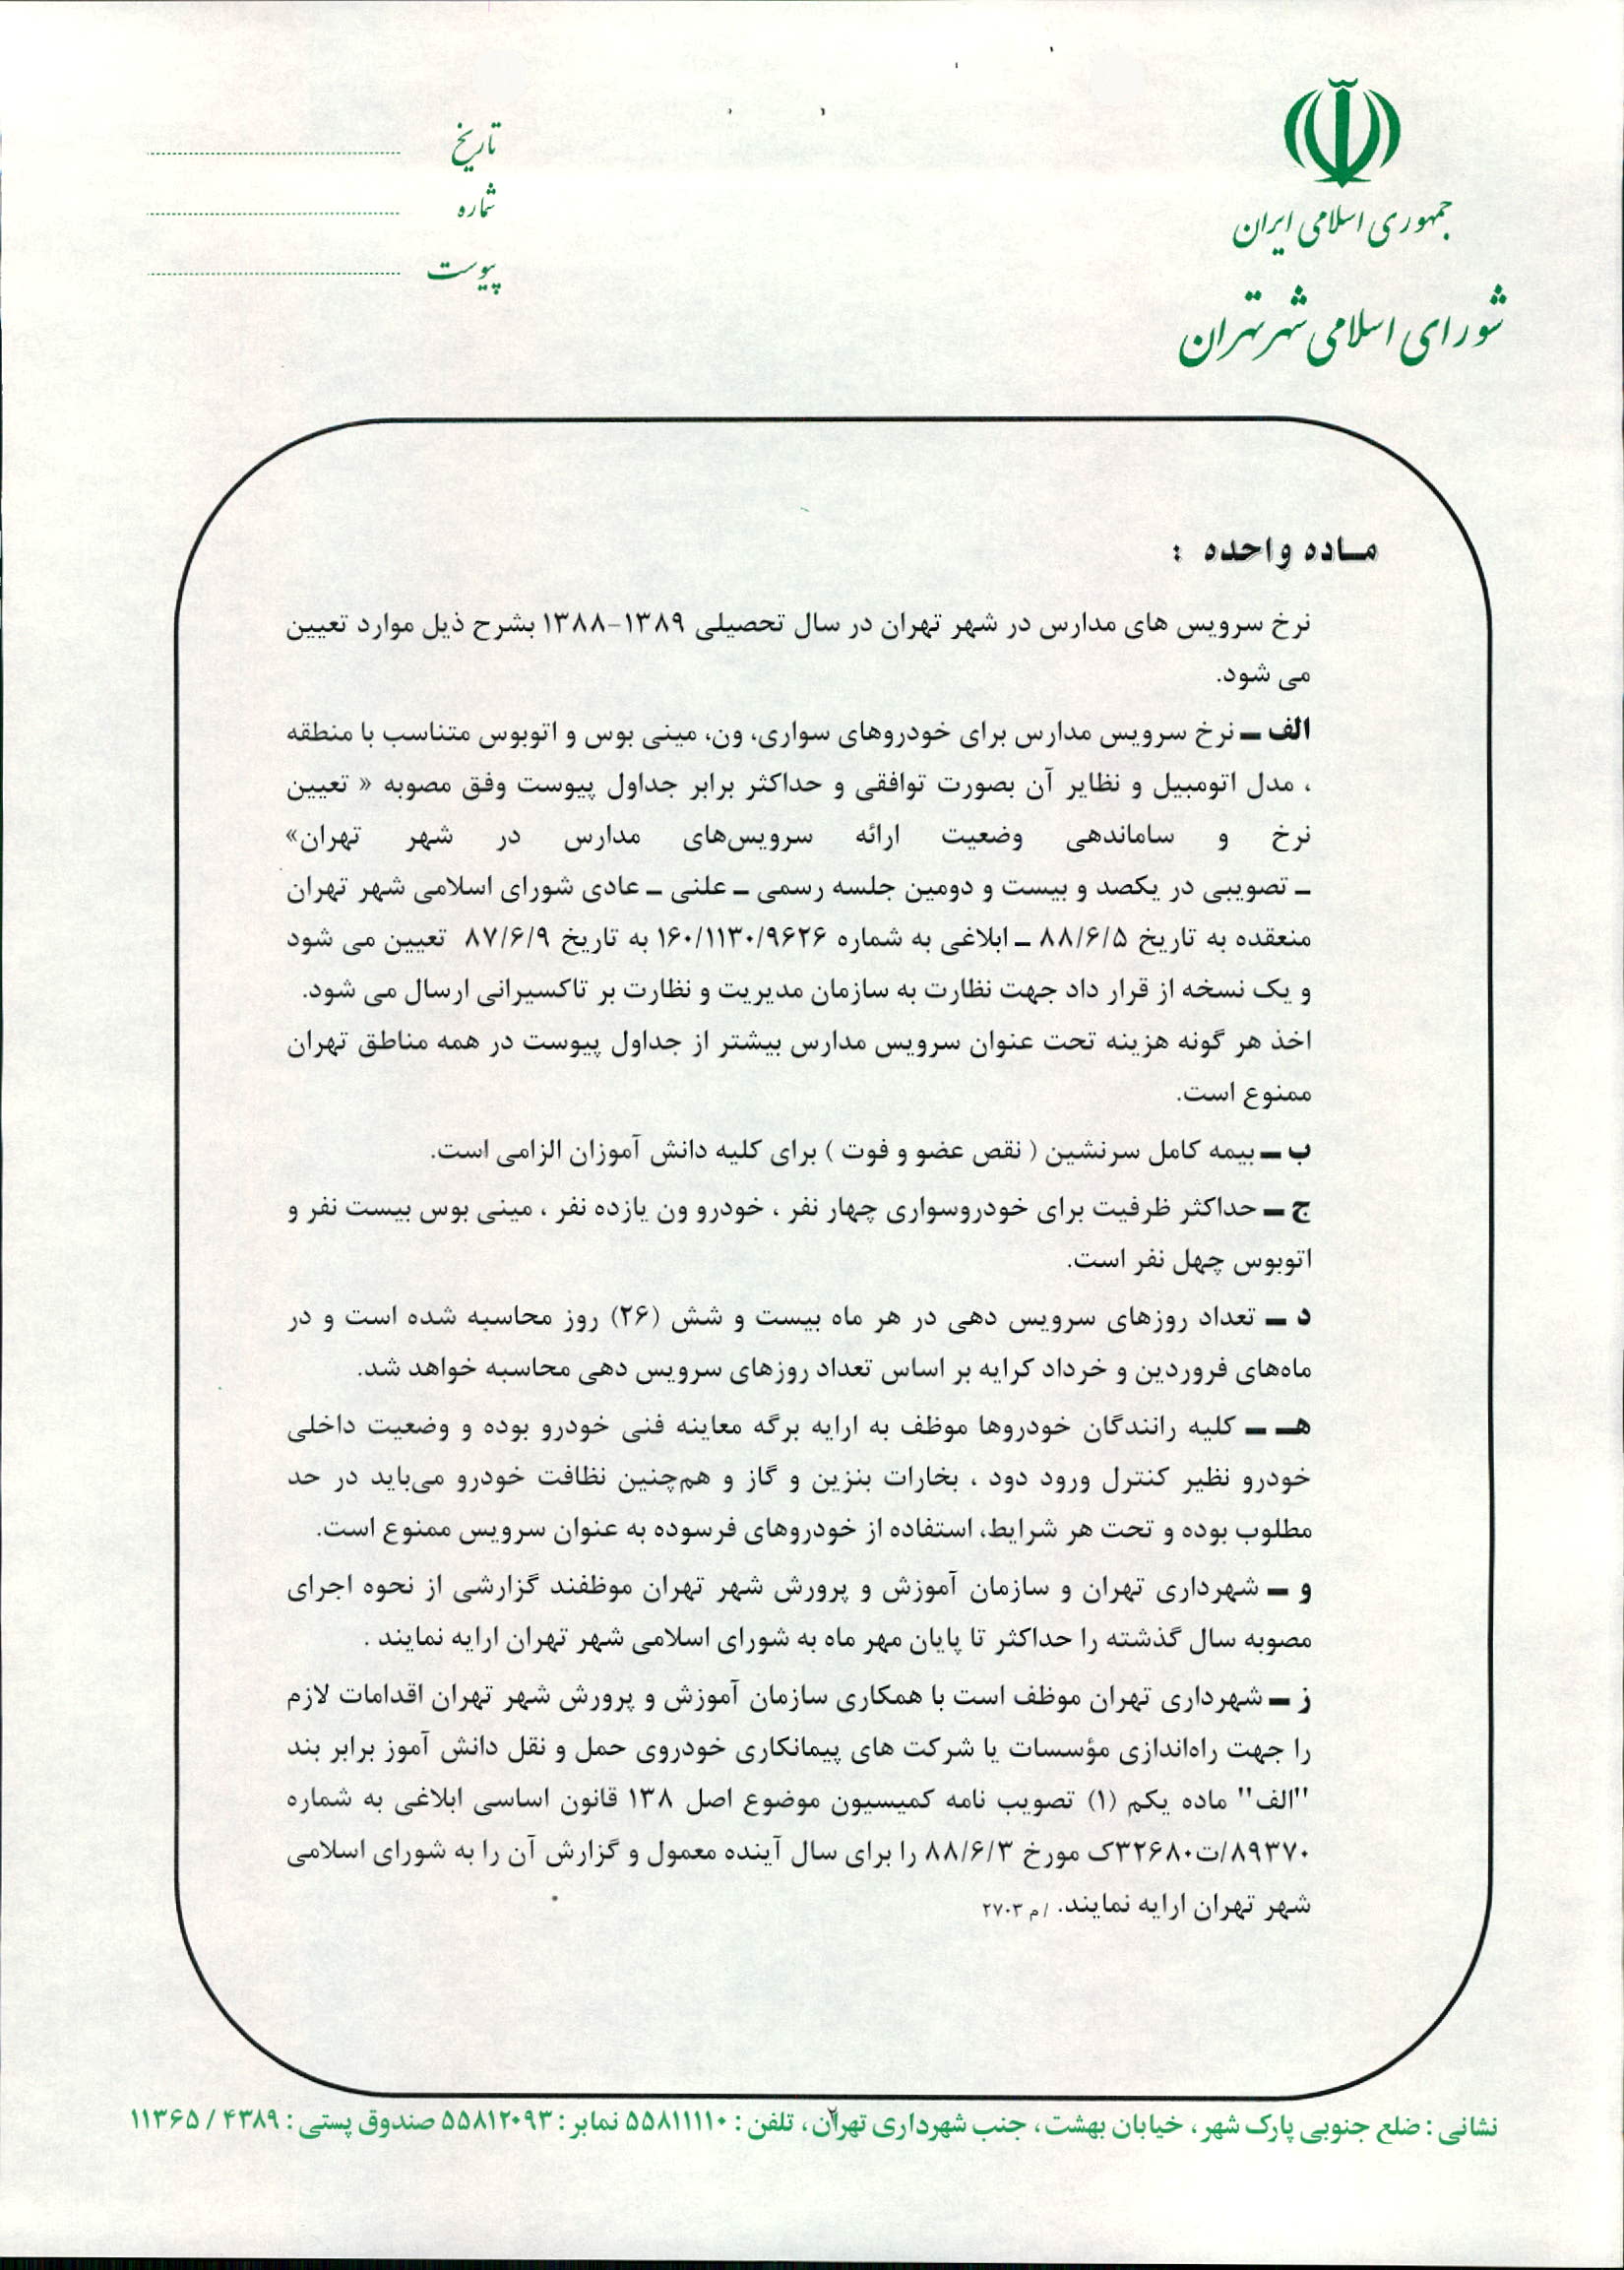 جمهوری اسلامی ایران
شورای اسلامی شهر تهران
تاریخ
شماره
پیوست
مـاده واحده :
نرخ سرویس های مدارس در شهر تهران در سال تحصیلی ۱۳۸۹-۱۳۸۸ بشرح ذیل موارد تعیین
می شود.
الف ـ نرخ سرویس مدارس برای خودروهای سواری، ون، مینی بوس و اتوبوس متناسب با منطقه
، مدل اتومبیل و نظایر آن بصورت توافقی و حداکثر برابر جداول پیوست وفق مصوبه « تعیین
نرخ و ساماندهی وضعیت ارائه سرویس‌های مدارس در شهر تهران»
ـ تصویبی در یکصد و بیست و دومین جلسه رسمی ـ علنی ـ عادی شورای اسلامی شهر تهران
منعقده به تاریخ ۸۸/۶/۵ ـ ابلاغی به شماره ۱۶۰/۱۱۳۰/۹۶۲۶ به تاریخ ۸۷/۶/۹ تعیین می شود
و یک نسخه از قرار داد جهت نظارت به سازمان مدیریت و نظارت بر تاکسیرانی ارسال می شود.
اخذ هر گونه هزینه تحت عنوان سرویس مدارس بیشتر از جداول پیوست در همه مناطق تهران
ممنوع است.
ب ـ بیمه کامل سرنشین ( نقص عضو و فوت ) برای کلیه دانش آموزان الزامی است.
ج ـ حداکثر ظرفیت برای خودروسواری چهار نفر ، خودرو ون یازده نفر ، مینی بوس بیست نفر و
اتوبوس چهل نفر است.
د ـ تعداد روزهای سرویس دهی در هر ماه بیست و شش (۲۶) روز محاسبه شده است و در
ماه‌های فروردین و خرداد کرایه بر اساس تعداد روزهای سرویس دهی محاسبه خواهد شد.
هـ ـ کلیه رانندگان خودروها موظف به ارایه برگه معاینه فنی خودرو بوده و وضعیت داخلی
خودرو نظیر کنترل ورود دود ، بخارات بنزین و گاز و هم‌چنین نظافت خودرو می‌باید در حد
مطلوب بوده و تحت هر شرایط، استفاده از خودروهای فرسوده به عنوان سرویس ممنوع است.
و ـ شهرداری تهران و سازمان آموزش و پرورش شهر تهران موظفند گزارشی از نحوه اجرای
مصوبه سال گذشته را حداکثر تا پایان مهر ماه به شورای اسلامی شهر تهران ارایه نمایند .
ز ـ شهرداری تهران موظف است با همکاری سازمان آموزش و پرورش شهر تهران اقدامات لازم
را جهت راه‌اندازی مؤسسات یا شرکت های پیمانکاری خودروی حمل و نقل دانش آموز برابر بند
"الف" ماده یکم (۱) تصویب نامه کمیسیون موضوع اصل ۱۳۸ قانون اساسی ابلاغی به شماره
۸۹۳۷۰/ت۳۲۶۸۰ک مورخ ۸۸/۶/۳ را برای سال آینده معمول و گزارش آن را به شورای اسلامی
شهر تهران ارایه نمایند. / م ۲۷۰۳
۲
نشانی : ضلع جنوبی پارک شهر ، خیابان بهشت ، جنب شهرداری تهران ، تلفن : ۵۵۸۱۱۱۱۰ نمابر : ۵۵۸۱۲۰۹۳ صندوق پستی : ۴۳۸۹ / ۱۱۳۶۵